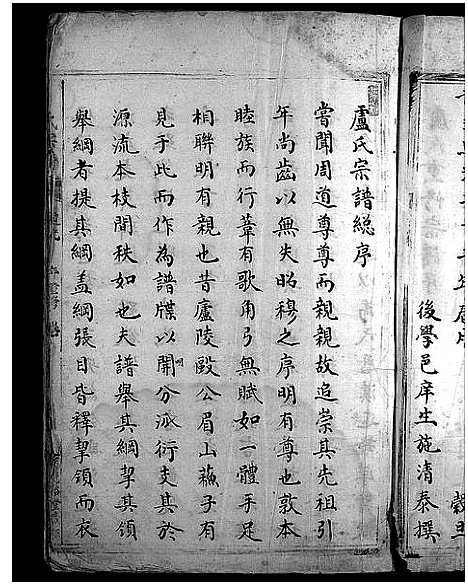 後學邑庠生施清泰撰
盧氏宗譜總序
嘗聞周道尊尊而親親故追崇其先祖引
年尚齒以無失昭穆之序明有尊也敦本
睦族而行葦有歌角弓無賦如一體手足
相聯明有親也昔廬陵歐公眉山蘓子有
見乎此而作為譜牒以開分派衍支其於
源流本枝間秩如也夫譜舉其綱挈其領
舉綱者提其綱盖綱張目皆釋挈領而衣